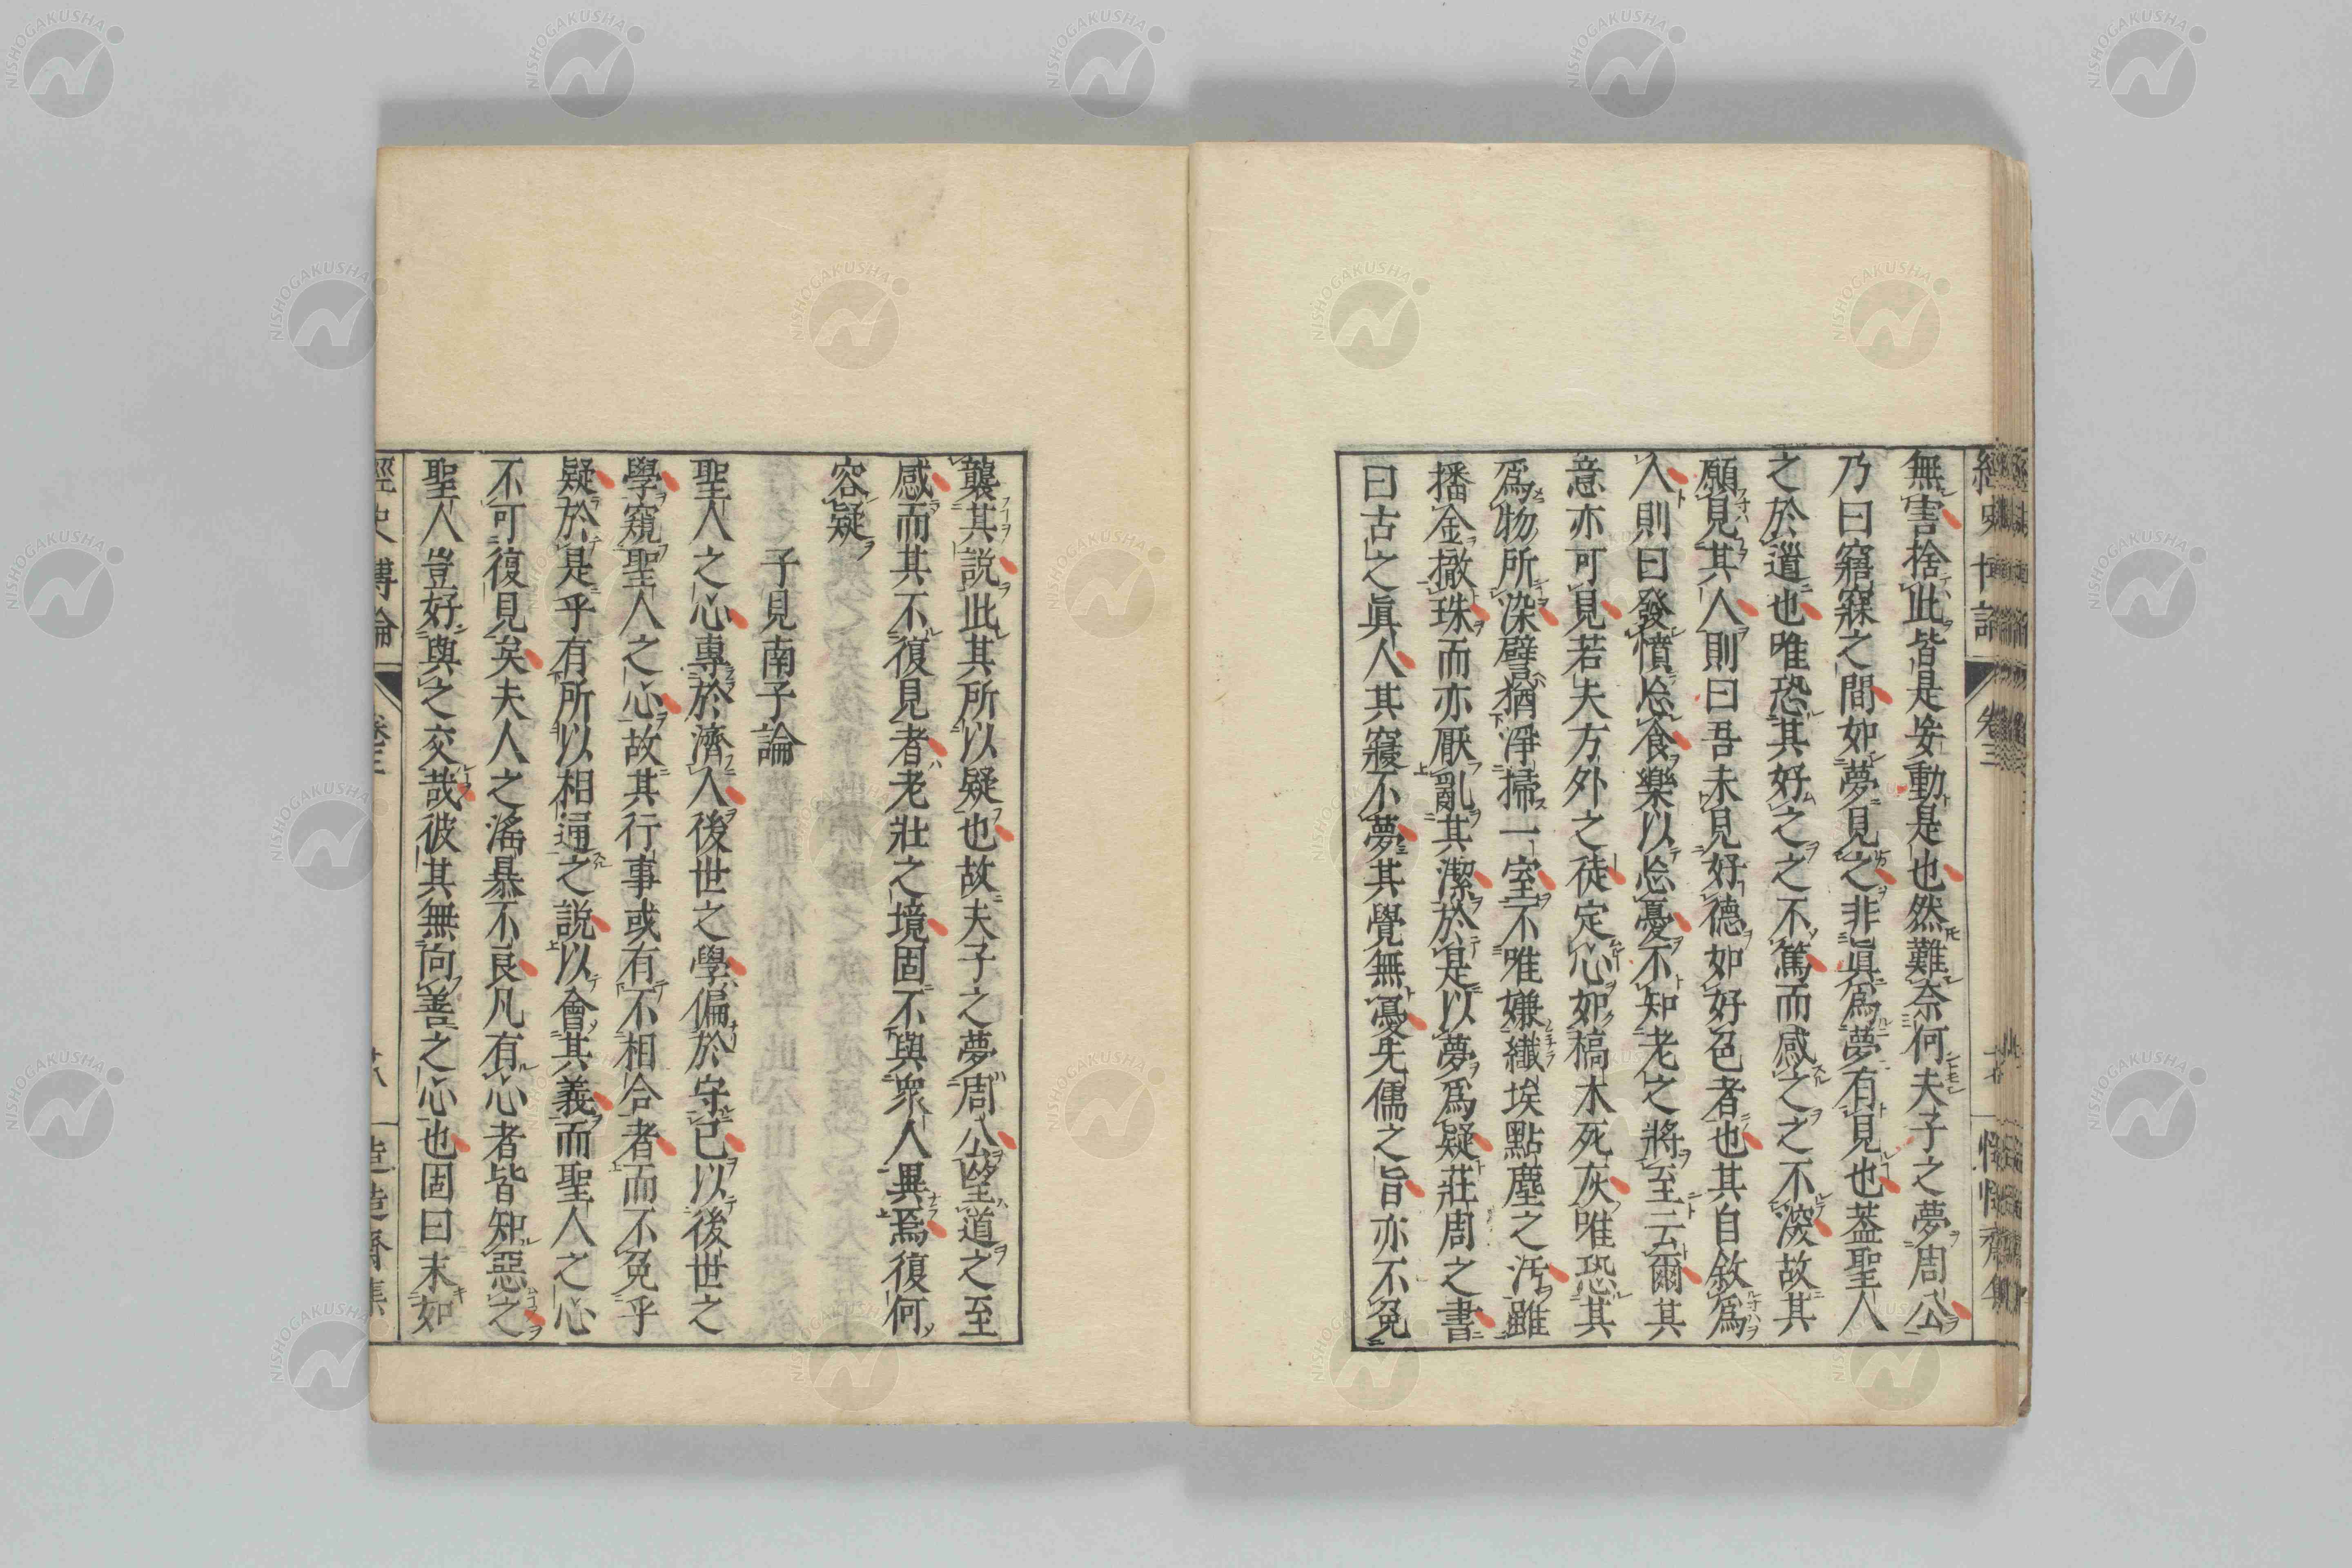 無害捨此皆是妄動是也然難奈何夫子之夢周公
乃曰寤寐之間如夢見之非眞爲夢有見也蓋聖人
之於道也唯恐其好之之不篤而感之之不深故其
願見其人則曰吾未見好德如好色者也其自敘爲
人則曰發憤忘食樂以忘憂不知老之將至云爾其
意亦可見若夫方外之徒定心如稿木死灰唯恐其
爲物所染譬猶淨掃一室不唯嫌纖埃點塵之汚雖
播金撒珠而亦厭亂其潔於是以夢爲疑莊周之書
曰古之眞人其寢不夢其覺無憂先儒之旨亦不免
襲其說此其所以疑也故夫子之夢周公望道之至
感而其不復見者老壯之境固不與衆人異焉復何
容疑
子見南子論
聖人之心專於濟人後世之學偏於守己以後世之
學窺聖人之心故其行事或有不相合者而不免乎
疑於是乎有所以相通之說以會其義而聖人之心
不可復見矣夫人之淫暴不良凡有心者皆知惡之
聖人豈好與之交哉彼其無向善之心也固曰末如
經史博論
卷三
十八
NISHOGAKUSHA